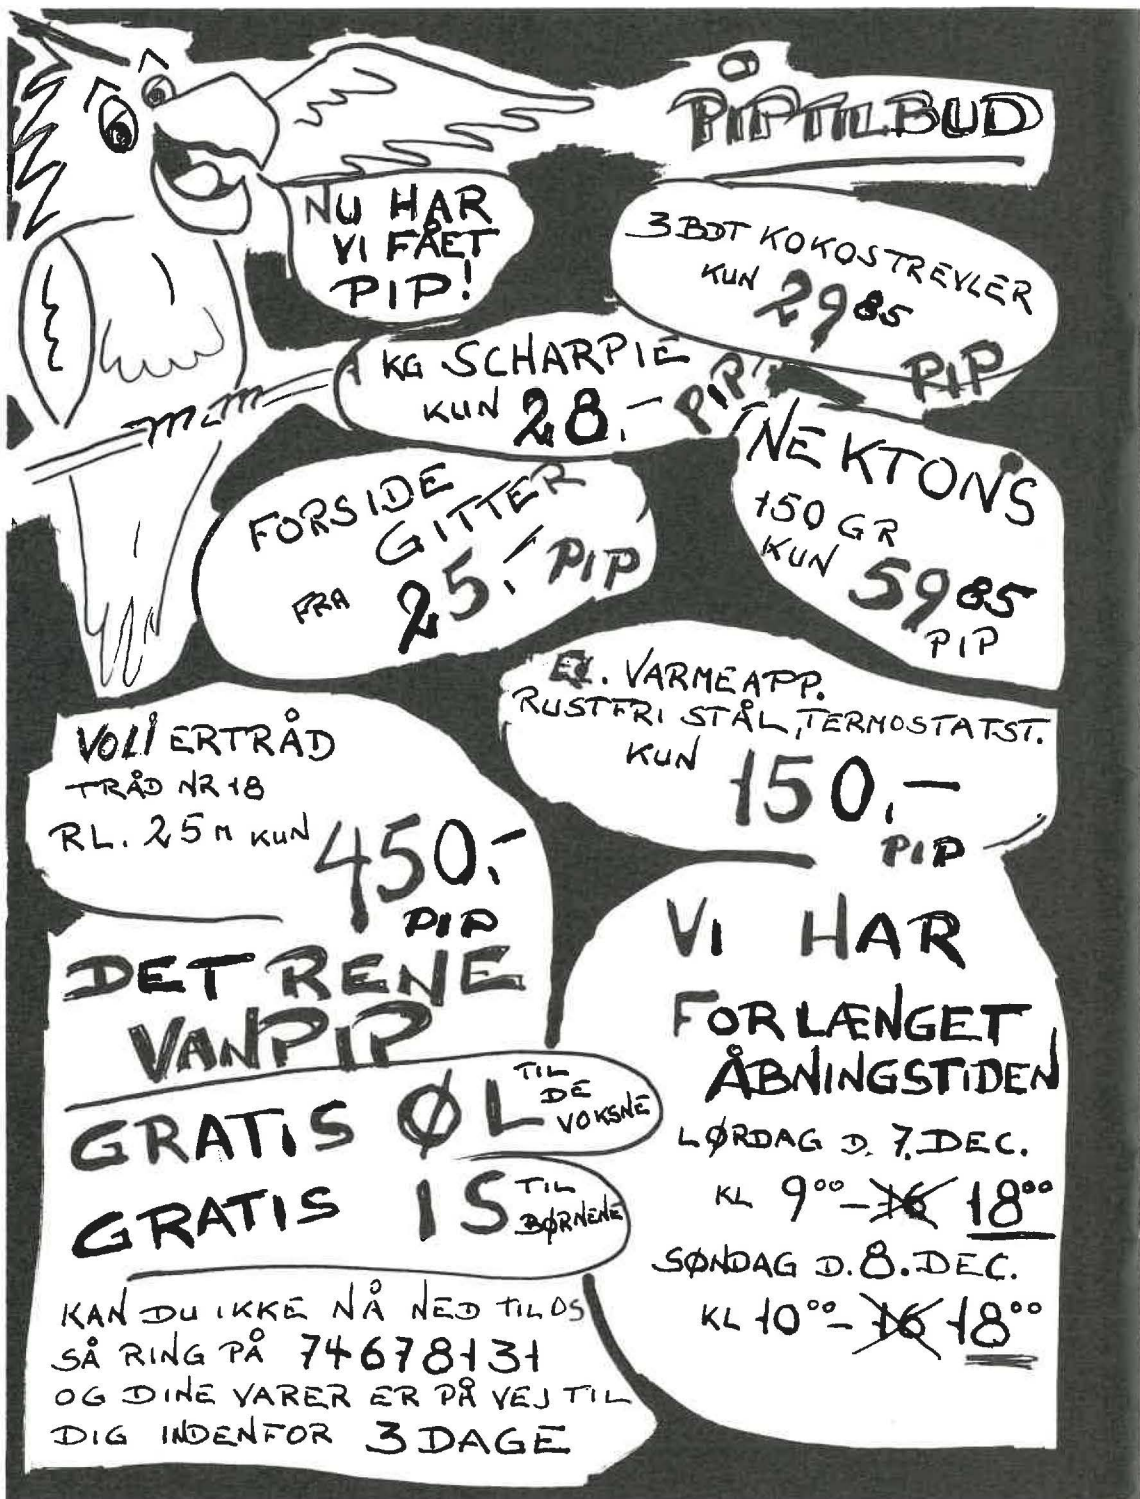 PIPTILBUD
NU HAR
VI FÅET
PIP!
3 BDT KOKOSTREVLER
KUN 29 85
PIP
KG SCHARPIE
KUN 28,- PIP
NEKTON'S
150 GR
KUN 59 85
PIP
FORSIDE
GITTER
FRA 25,- PIP
EL. VARMEAPP.
RUSTFRI STÅL, TERMOSTATST.
KUN 150,-
PIP
VOLIERTRÅD
TRÅD NR 18
RL. 25 M KUN 450,-
PIP
DET RENE
VANPIP
GRATIS ØL TIL DE VOKSNE
GRATIS IS TIL BØRNENE
KAN DU IKKE NÅ NED TIL OS
SÅ RING PÅ 74678131
OG DINE VARER ER PÅ VEJ TIL
DIG INDENFOR 3 DAGE
VI HAR
FORLÆNGET
ÅBNINGSTIDEN
LØRDAG D. 7. DEC.
KL 9 00 - 16 18 00
SØNDAG D. 8. DEC.
KL 10 00 - 16 18 00